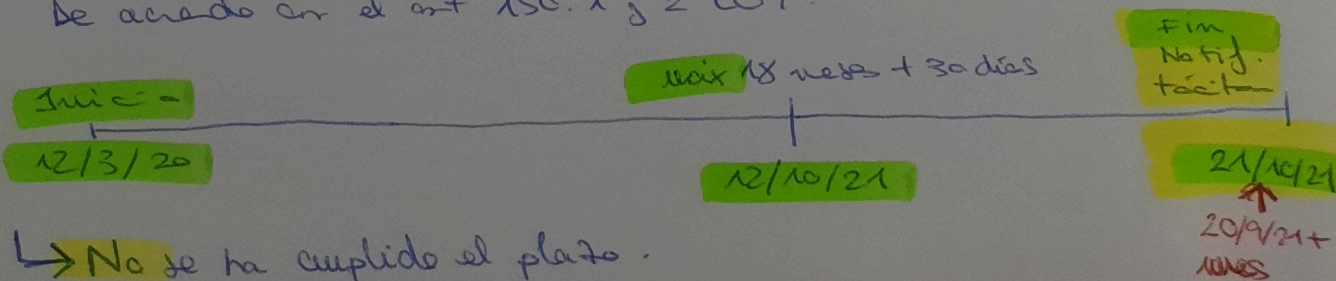 De acuerdo con el art 150.1 y 2 LGT.
Inicio
máx 18 meses + 30 días
Fin
Notif.
tácita
12/3/20
12/10/21
21/10/21
20/9/21 +
1 mes
↳ No se ha cumplido el plazo.